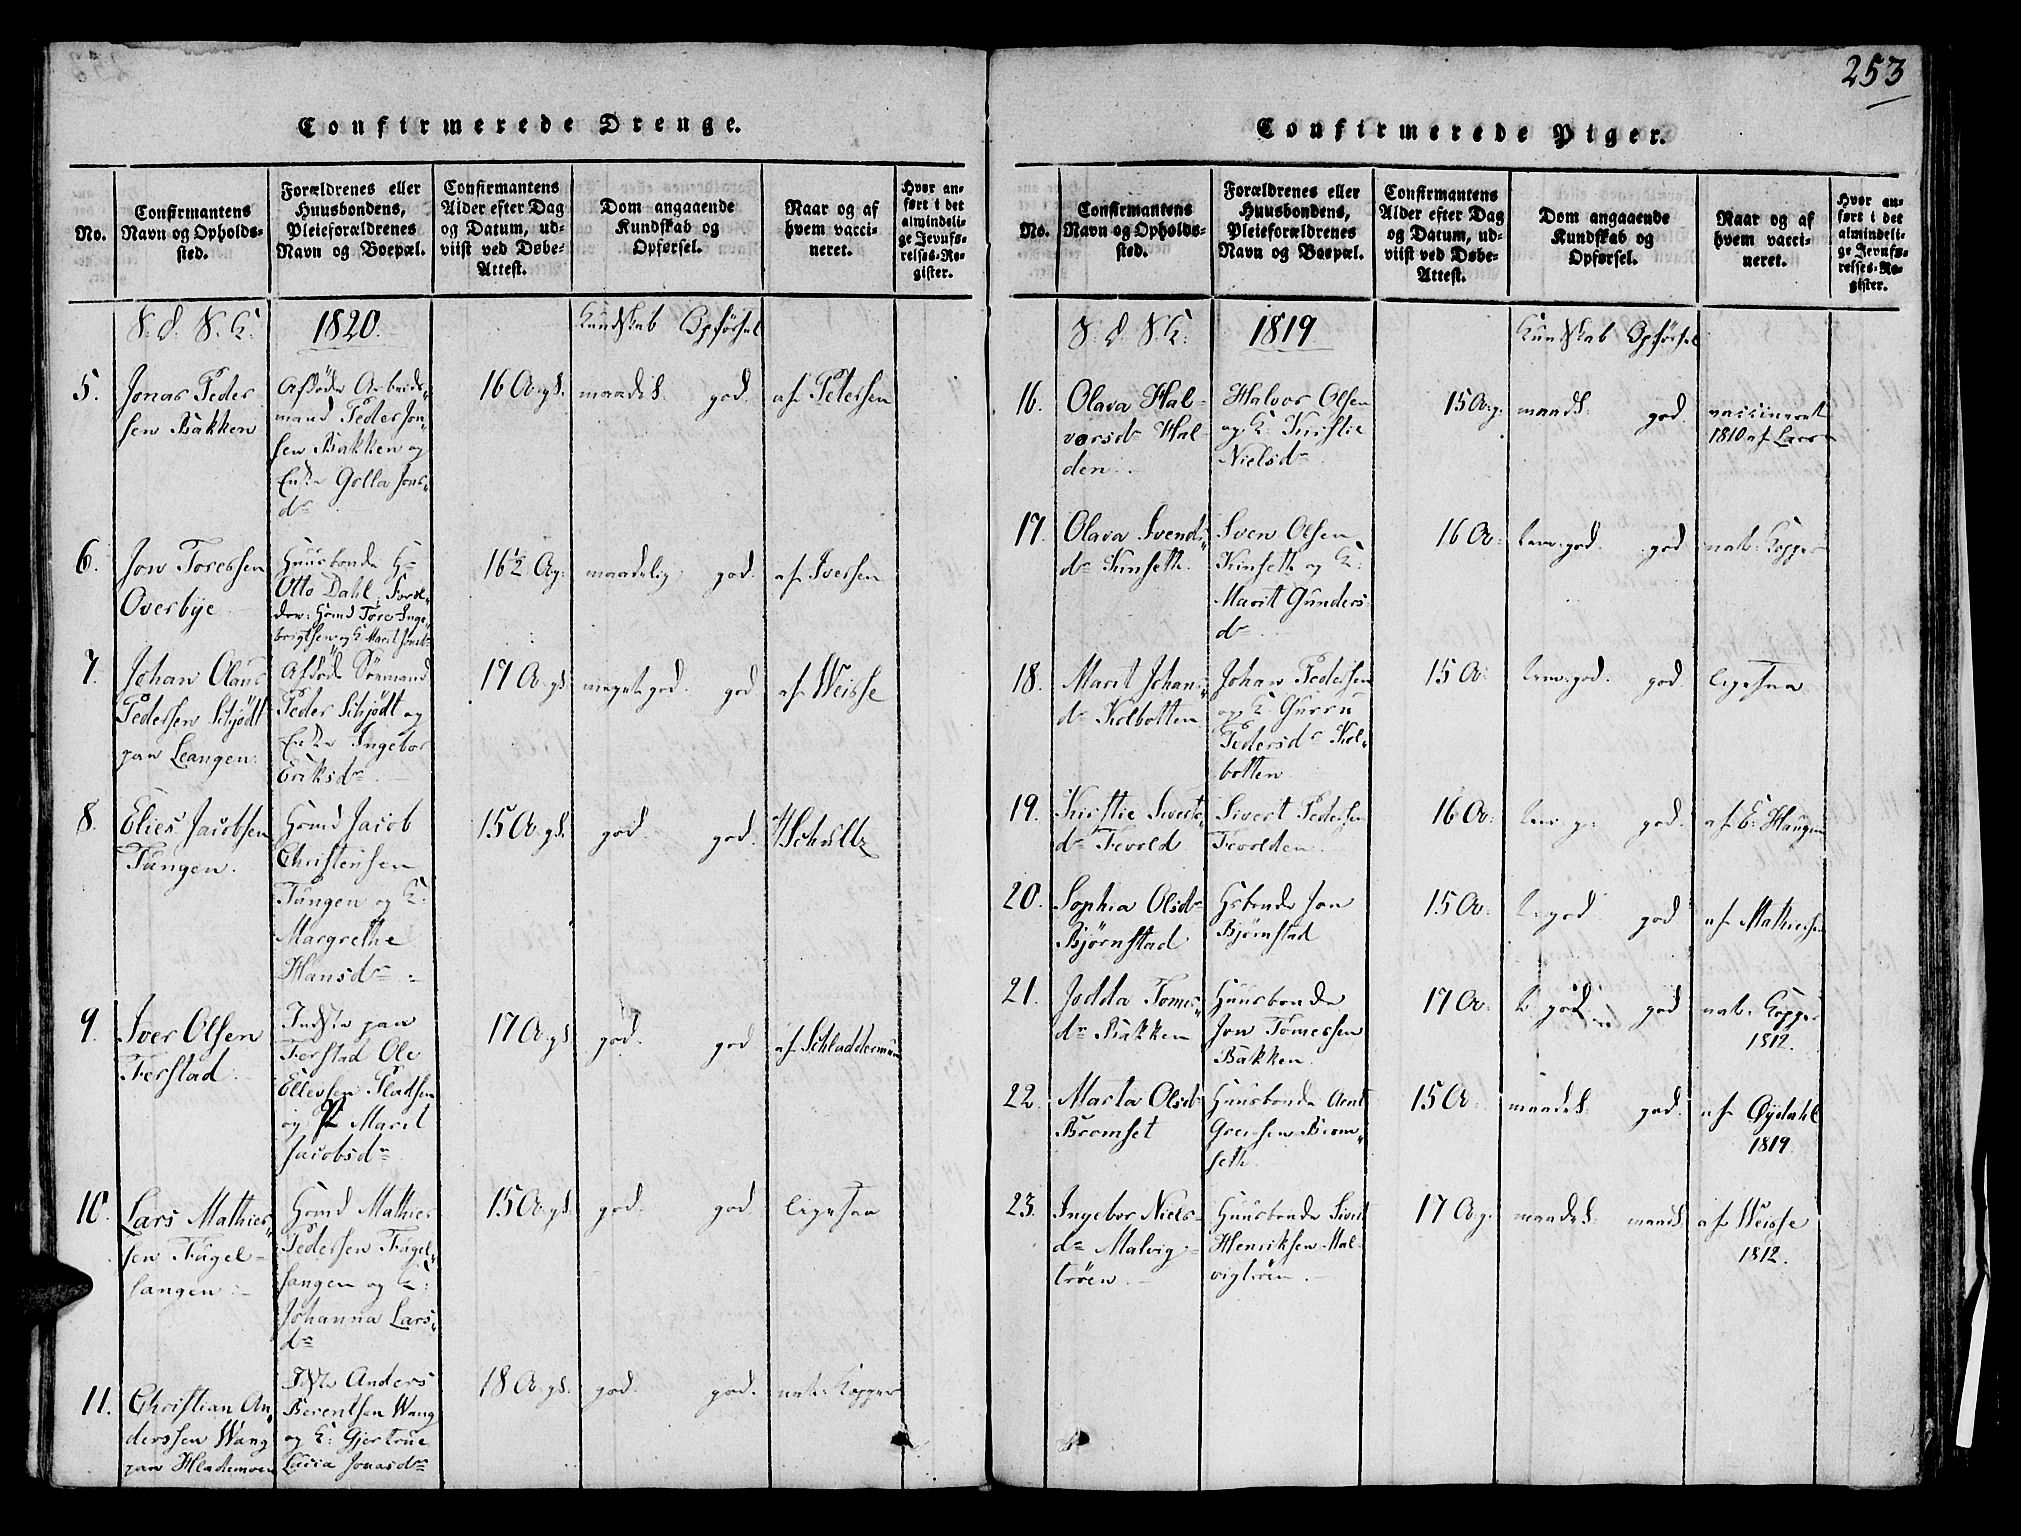 253
Confirmerede Drenge.
No.
Confirmantens
Navn og Opholds-
sted.
Forældrenes eller
Huusbondens,
Pleieforældrenes
Navn og Boepæl.
Confirmantens
Alder efter Dag
og Datum, ud-
viist ved Døbe-
Attest.
Dom angaaende
Kundskab og
Opførsel.
Naar og af
hvem vacci-
neret.
Hvor an-
ført i det
almindeli-
ge Jevnfø-
relses-Re-
gister.
1820.
Kundskab Opførsel
5.
Jonas Peder
sen Bakken
Afdøde Arbeids-
mand Peder Jon-
sen Bakken og
Enke Golla Jons-
dr
16 A. gl.
maadel.
god.
af Petersen
6.
Jon Toressen
Overbÿe
Huusbonde Hr
Otto Dahl, Foræl-
dre: Hmd Tore Inge-
brigtsen og K. Marit Jonsdr
16½ Ag.
maadelig
god.
af Iversen
7.
Johan Olaus
Pedersen Schjödt
paa Leangen
Afdøde Sömand
Peder Schjödt og
Enke Ingebor
Eriksdr
17 A. gl.
meget god.
god
af Weisse
8.
Elies Jacobsen
Tungen.
Hmd Jacob
Christensen
Tungen og K:
Margrethe
Hansdr
15 A. gl.
god.
god.
Schultz
9.
Iver Olsen
Ferstad
Indste paa
Ferstad Ole
Ellevsen Pladsen
og K Marit
Jacobsdr
17 A. gl
god.
god
af Schladdermün
10.
Lars Mathies-
sen Fugel-
sangen
Hmd Mathies
Pedersen Fugel-
sangen og K:
Johanna Lars-
dr
15 A. gl.
god.
god
ligesaa
11.
Christian An-
derssen Wang
paa Hlademoen
Indste Anders
Berentsen Wang
og K: Gjertrue
Lucia Jonasdr
18 A. gl.
god.
god.
nat: Kopper
Confirmerede Piger.
No.
Confirmantens
Navn og Opholds-
sted.
Forældrenes eller
Huusbondens,
Pleieforældrenes
Navn og Boepæl.
Confirmantens
Alder efter Dag
og Datum, ud-
viist ved Døbe-
Attest.
Dom angaaende
Kundskab og
Opførsel.
Naar og af
hvem vacci-
neret.
Hvor an-
ført i det
almindeli-
ge Jevnfø-
relses-Re-
gister.
1819
Kundskab Opførsel
16.
Olava Hal-
vorsdr Hal-
den
Halvor Olsen
og K: Kirstie
Nielsdr
15 A. g.
maadl.
god
vaccineret
1810 af Lars
17.
Olava Svends-
dr Kinseth.
Sven Olsen
Kinseth og K:
Marit Gunders
dr
16 A:
tem. god.
god
nat: Kopper
18.
Marit Johans-
dr Kolbotten
Johan Pedersen
og K: Gurru
Pedersdr Kol-
botten
15 A:
tem. god.
god.
ligesaa
19.
Kirstie Siverts-
dr Fevold
Sivert Pedersen
Fevolden.
16 A:
tem. g:
god.
af E: Haugen
20.
Sophia Olsdr
Bjørnstad
Hsbonde Jon
Bjørnstad
15 A:
t. god
god
af Mathiesen
21.
Jodda Tomes-
dr Bakken
Huusbonde
Jon Tomessen
Bakken
17 A:
t. god
god
nat: Kopper
1812.
22.
Marta Olsdr
Bromset
Huusbonde Arnt
Greisen Brom-
seth
15 A:
maadel.
god.
af Øÿdahl
1819.
23.
Ingebor Niels-
dr Malvig-
trøen
Huusbonde Sivert
Henriksen Mal-
vigtrøn.
17 A. g.
maadel.
maadl
af Weisse
1812.